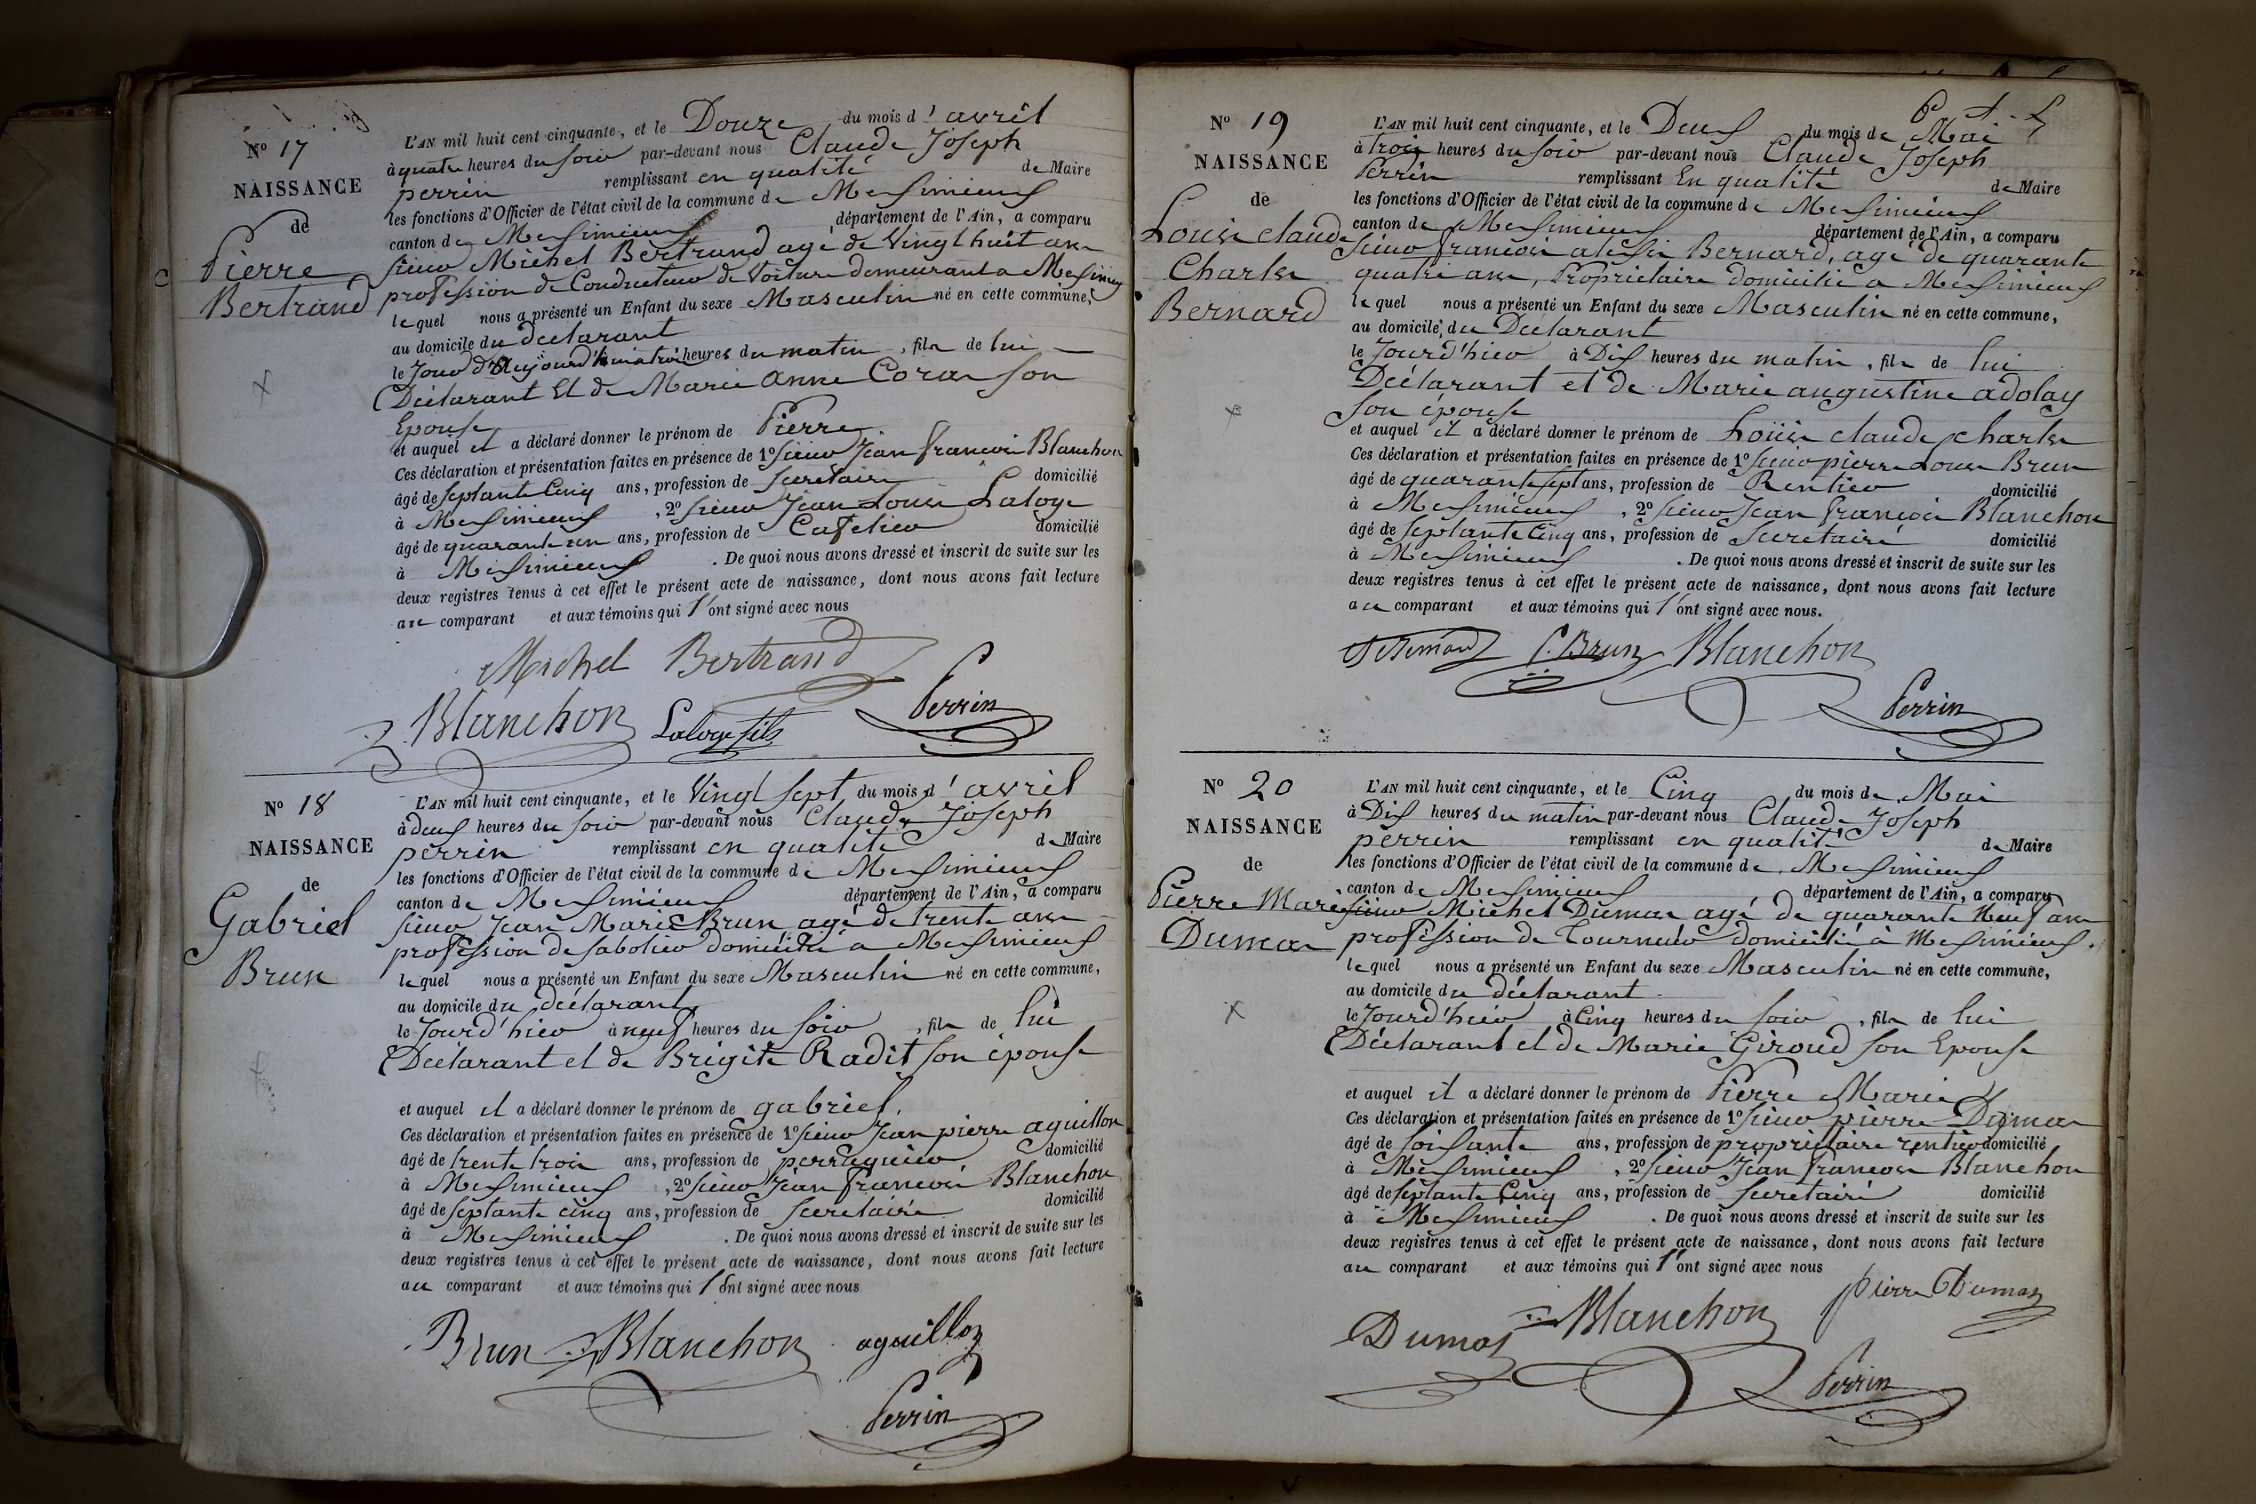 Nº 17
NAISSANCE
de
Pierre
Bertrand
L'AN mil huit cent cinquante, et le Douze du mois d'avril
à quatre heures du soir par-devant nous Claude Joseph
perrin remplissant en qualité de Maire
les fonctions d'Officier de l'état civil de la commune de Messimieux
canton de Messimieux département de l'Ain, a comparu
sieur Michel Bertrand agé de Vingt huit ans
profession de Conducteur de Voiture demeurant a Messimieux
lequel nous a présenté un Enfant du sexe Masculin né en cette commune,
au domicile du declarant
le Jour d'aujourd'hui à trois heures du matin, fils de lui
Déclarant Et de Marie Anne Coras son
Epouse
et auquel il a déclaré donner le prénom de Pierre
Ces déclaration et présentation faites en présence de 1º sieur Jean françois Blanchon
âgé de septante Cinq ans, profession de Secretaire domicilié
à Messimieux, 2º sieur Jean Louis Laloge
âgé de quarante un ans, profession de Cafetier domicilié
à Messimieux. De quoi nous avons dressé et inscrit de suite sur les
deux registres tenus à cet effet le présent acte de naissance, dont nous avons fait lecture
au comparant et aux témoins qui l'ont signé avec nous
Michel Bertrand
Blanchon Laloge fils Perrin
Nº 18
NAISSANCE
de
Gabriel
Brun
L'AN mil huit cent cinquante, et le Vingt sept du mois d'avril
à deux heures du soir par-devant nous Claude Joseph
perrin remplissant en qualité de Maire
les fonctions d'Officier de l'état civil de la commune de Messimieux
canton de Messimieux département de l'Ain, a comparu
sieur Jean Marie Brun agé de trente ans
profession de sabotier domicilié a Messimieux
lequel nous a présenté un Enfant du sexe Masculin né en cette commune,
au domicile du déclarant
le Jourd'hier à neuf heures du soir, fils de lui
Déclarant et de Brigite Radit son épouse
et auquel il a déclaré donner le prénom de gabriel.
Ces déclaration et présentation faites en présence de 1º sieur Jean pierre aguillon
âgé de trente trois ans, profession de perruquier domicilié
à Messimieux, 2º sieur Jean françois Blanchon
âgé de septante cinq ans, profession de Secretaire domicilié
à Messimieux. De quoi nous avons dressé et inscrit de suite sur les
deux registres tenus à cet effet le présent acte de naissance, dont nous avons fait lecture
au comparant et aux témoins qui l'ont signé avec nous
Brun Blanchon aguillon
Perrin
Nº 19
NAISSANCE
de
Louis claude
Charles
Bernard
L'AN mil huit cent cinquante, et le Deux du mois de Mai
à trois heures du soir par-devant nous Claude Joseph
Perrin remplissant En qualité de Maire
les fonctions d'Officier de l'état civil de la commune de Messimieux
canton de Messimieux département de l'Ain, a comparu
sieur françois alexis Bernard, agé de quarante
quatre ans, Propriétaire domicilié a Messimieux
lequel nous a présenté un Enfant du sexe Masculin né en cette commune,
au domicile du Déclarant
le Jourd'hier à Dix heures du matin, fils de lui
Déclarant et de Marie augustine adolay
son épouse
et auquel il a déclaré donner le prénom de Loüis claude charles
Ces déclaration et présentation faites en présence de 1º sieur pierre Louis Brun
âgé de quarante sept ans, profession de Rentier domicilié
à Messimieux, 2º sieur Jean françois Blanchon
âgé de septante Cinq ans, profession de Secretaire domicilié
à Messimieux. De quoi nous avons dressé et inscrit de suite sur les
deux registres tenus à cet effet le présent acte de naissance, dont nous avons fait lecture
au comparant et aux témoins qui l'ont signé avec nous.
Brun Blanchon
Perrin
Nº 20
NAISSANCE
de
Pierre Marie
Dumas
L'AN mil huit cent cinquante, et le Cinq du mois de Mai
à Dix heures du matin par-devant nous Claude Joseph
perrin remplissant en qualité de Maire
les fonctions d'Officier de l'état civil de la commune de Messimieux
canton de Messimieux département de l'Ain, a comparu
sieur Michel Dumas agé de quarante Neuf ans
profession de Tourneur domicilié à Messimieux.
lequel nous a présenté un Enfant du sexe Masculin né en cette commune,
au domicile du déclarant
le Jourd'hier à Cinq heures du soir, fils de lui
Déclarant et de Marie Giroud son Epouse
et auquel il a déclaré donner le prénom de Pierre Marie
Ces déclaration et présentation faites en présence de 1º sieur pierre Dumas
âgé de soixante ans, profession de propriétaire rentier domicilié
à Messimieux, 2º sieur Jean françois Blanchon
âgé de septante Cinq ans, profession de Secretaire domicilié
à Messimieux. De quoi nous avons dressé et inscrit de suite sur les
deux registres tenus à cet effet le présent acte de naissance, dont nous avons fait lecture
au comparant et aux témoins qui l'ont signé avec nous
Dumas Blanchon pierre Dumas
Perrin